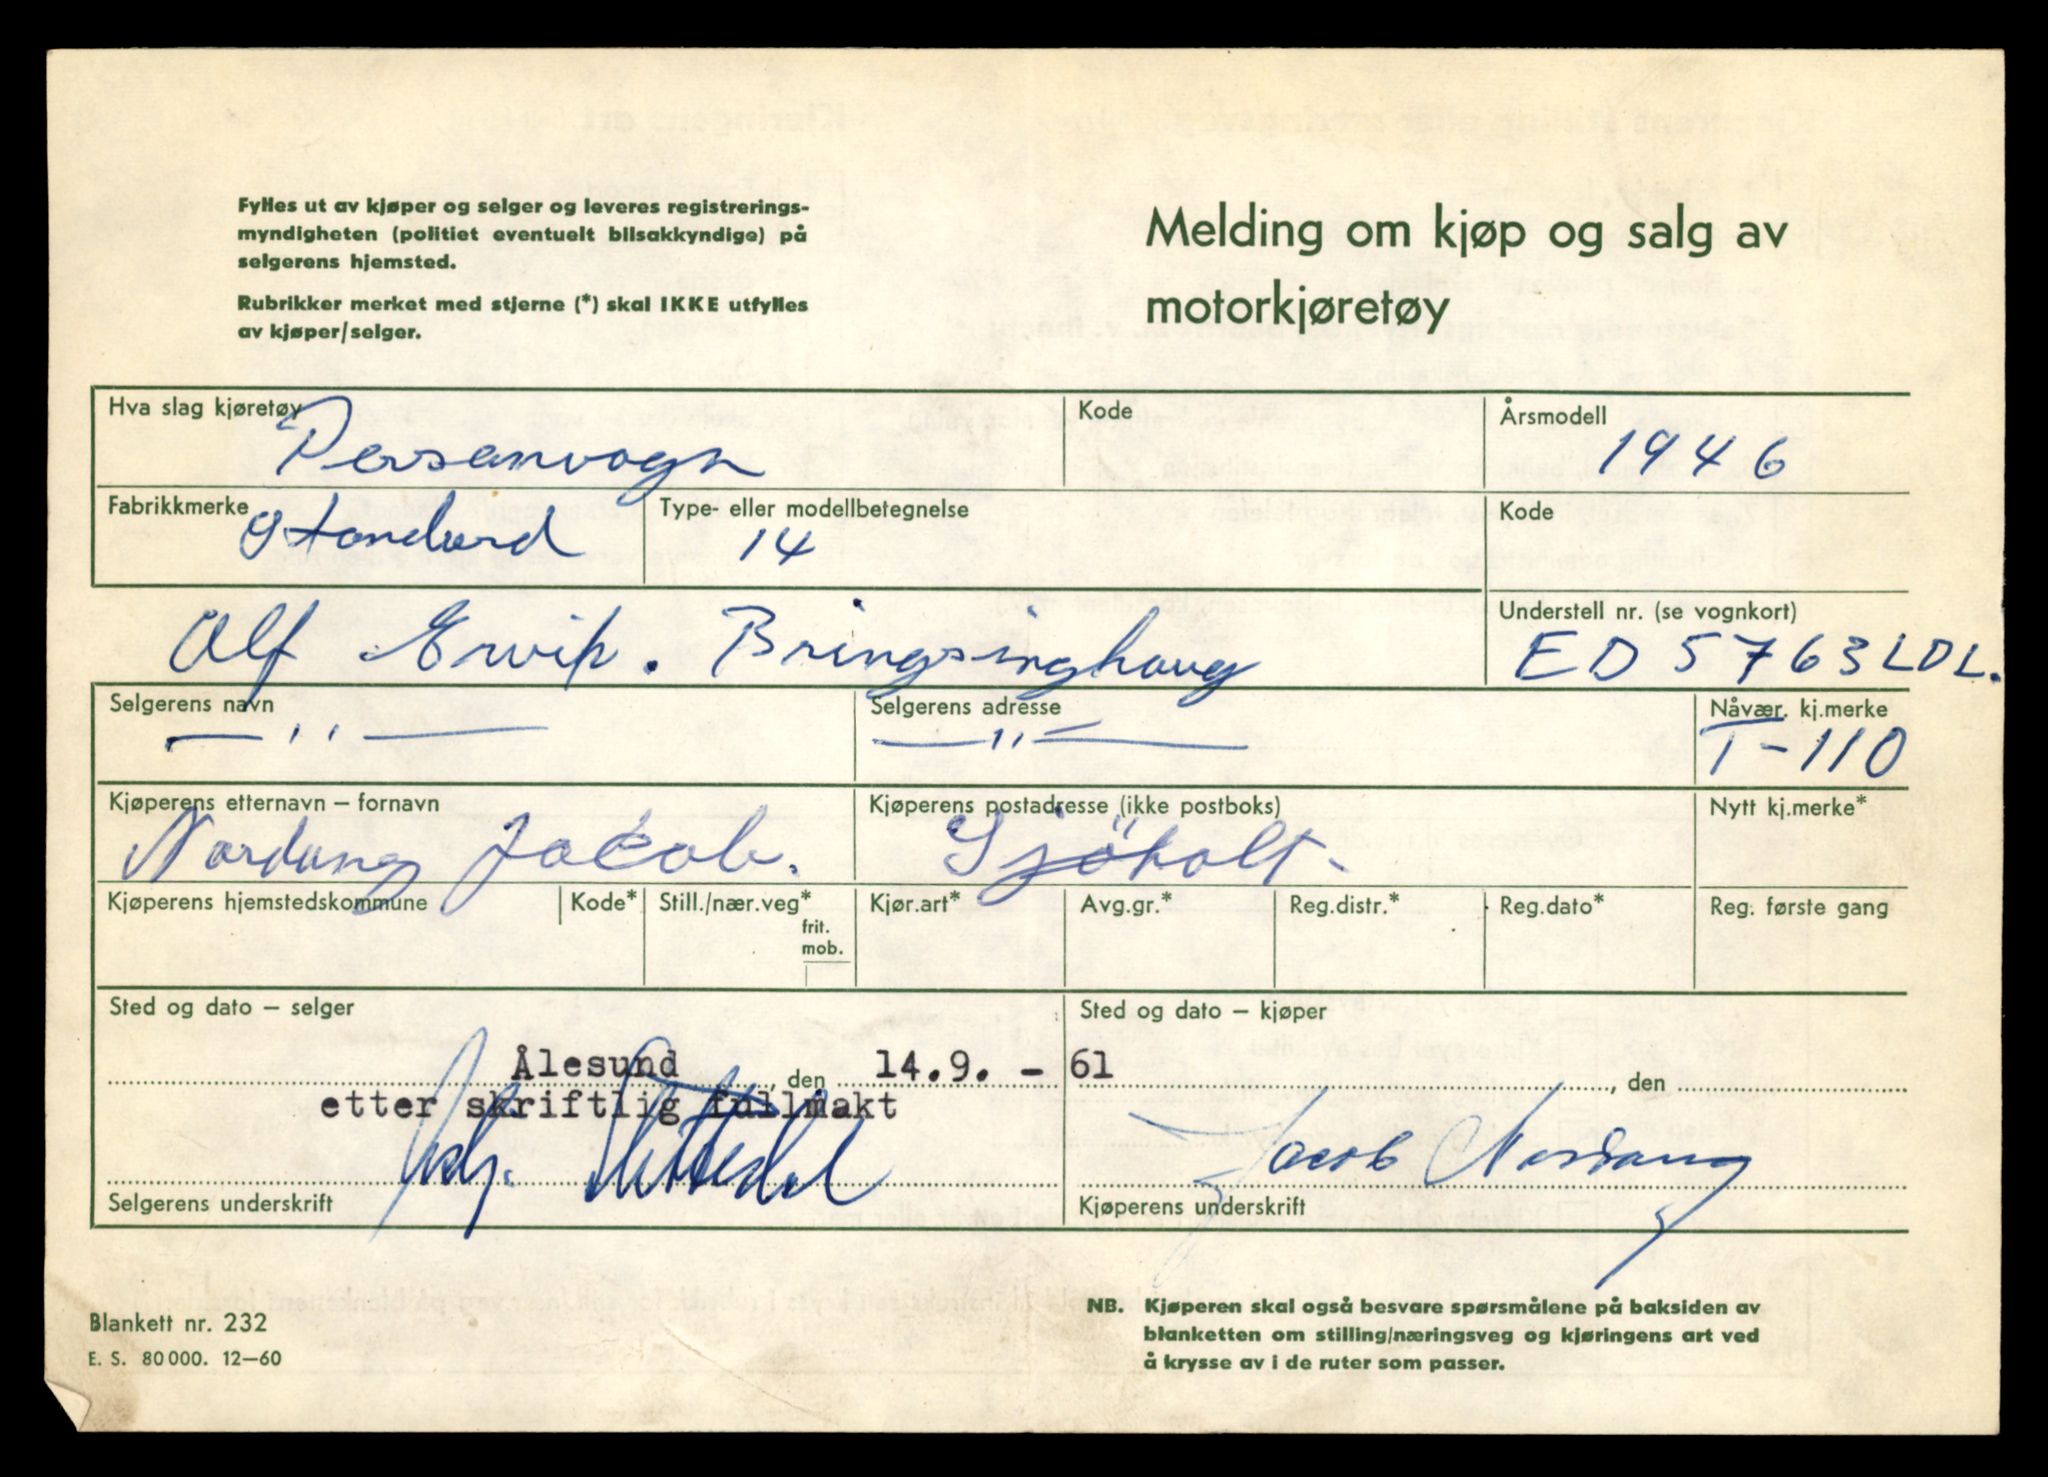 Fylles ut av kjøper og selger og leveres registrerings-
myndigheten (politiet eventuelt bilsakkyndige) på
selgerens hjemsted.
Rubrikker merket med stjerne (*) skal IKKE utfylles
av kjøper/selger.
Melding om kjøp og salg av
motorkjøretøy
Hva slag kjøretøy
Personvogn
Kode
Årsmodell
1946
Fabrikkmerke
Standard
Type- eller modellbetegnelse
14
Kode
Alf Ervik. Bringsinghaug
Understell nr. (se vognkort)
ED 5763 LDL.
Selgerens navn
— ,, —
Selgerens adresse
— ,, —
Nåvær. kj.merke
T-110
Kjøperens etternavn – fornavn
Nordang Jacob.
Kjøperens postadresse (ikke postboks)
Sjöholt.
Nytt kj.merke*
Kjøperens hjemstedskommune
Kode*
Still./nær.veg*
frit.
mob.
Kjør.art*
Avg.gr.*
Reg.distr.*
Reg.dato*
Reg. første gang
Sted og dato – selger
Sted og dato – kjøper
Ålesund, den 14.9. - 61
, den
etter skriftlig fullmakt
Jacob Nordang
Selgerens underskrift
Kjøperens underskrift
Blankett nr. 232
E. S. 80 000. 12–60
NB. Kjøperen skal også besvare spørsmålene på baksiden av
blanketten om stilling/næringsveg og kjøringens art ved
å krysse av i de ruter som passer.